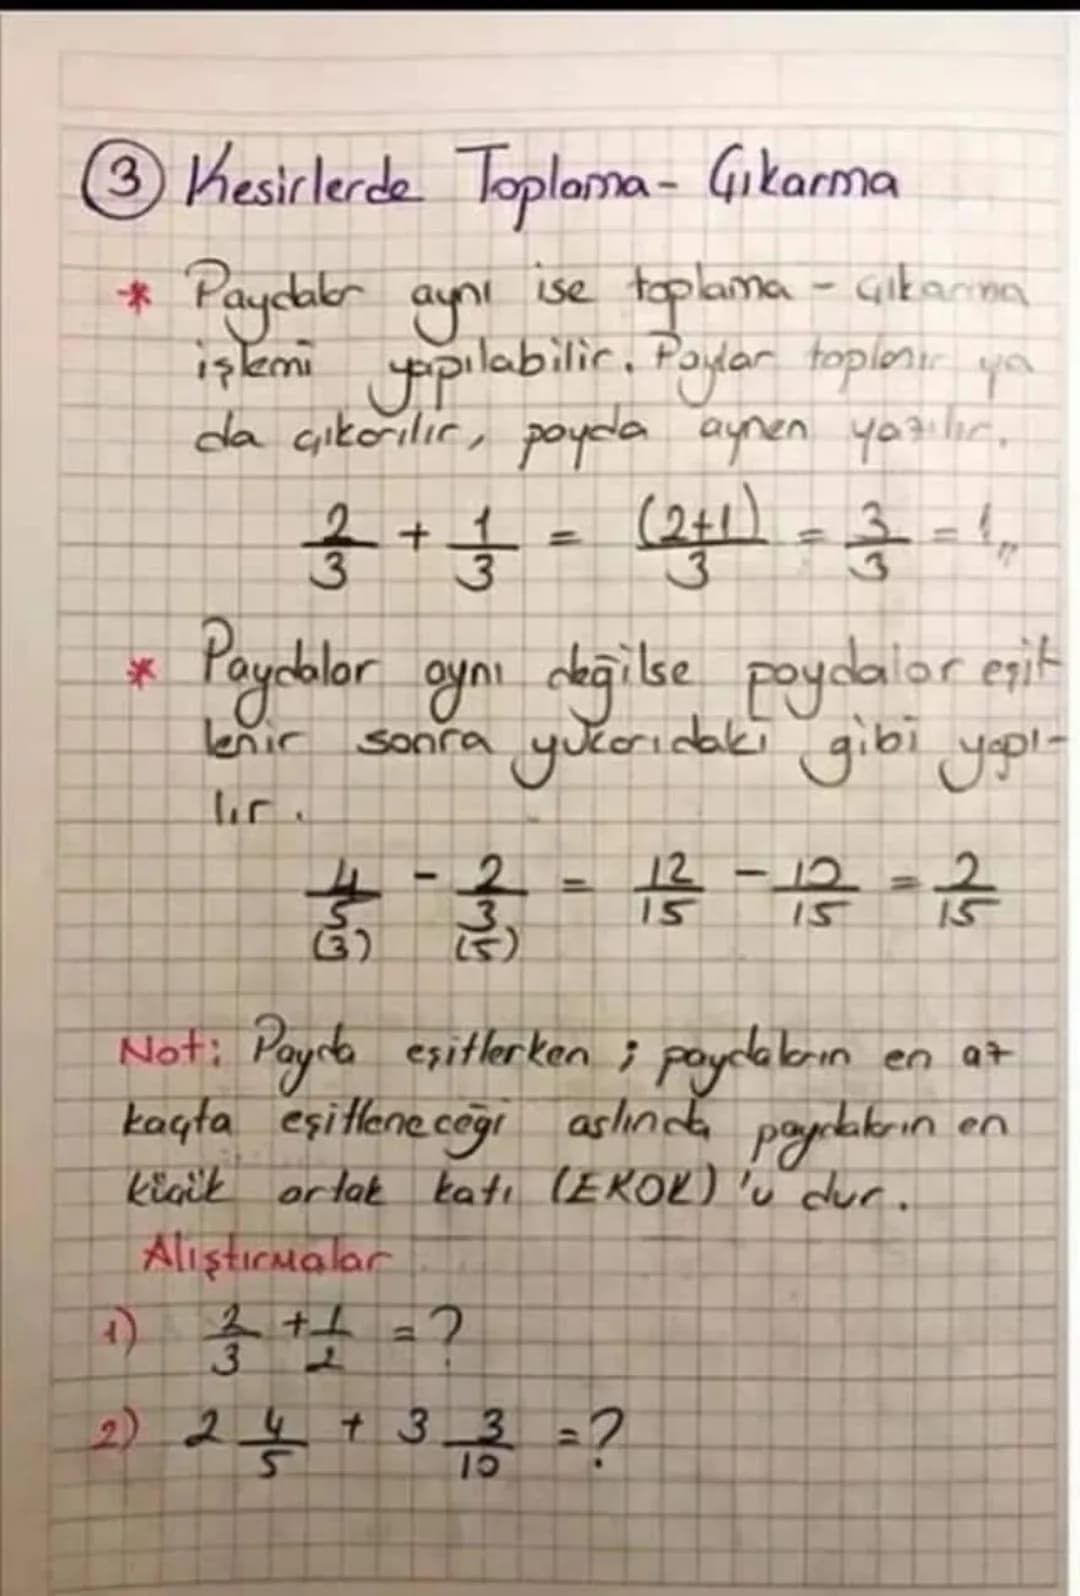 3 Kesirlerde Toplama - Çıkarma
* Paydalar aynı ise toplama - çıkarma
işlemi yapılabilir. Paylar toplanır ya
da çıkarılır, payda aynen yazılır.
2/3 + 1/3 = (2+1)/3 = 3/3 = 1,,
* Paydalar aynı değilse paydalar eşit
lenir sonra yukarıdaki gibi yapı-
lır.
4/5 (3) - 2/3 (5) = 12/15 - 10/15 = 2/15
Not: Payda eşitlerken ; paydaların en az
kaçta eşitleneceği aslında paydaların en
küçük ortak katı (EKOK) 'u dur.
Alıştırmalar
1) 2/3 + 1/2 = ?
2) 2 4/5 + 3 3/10 = ?